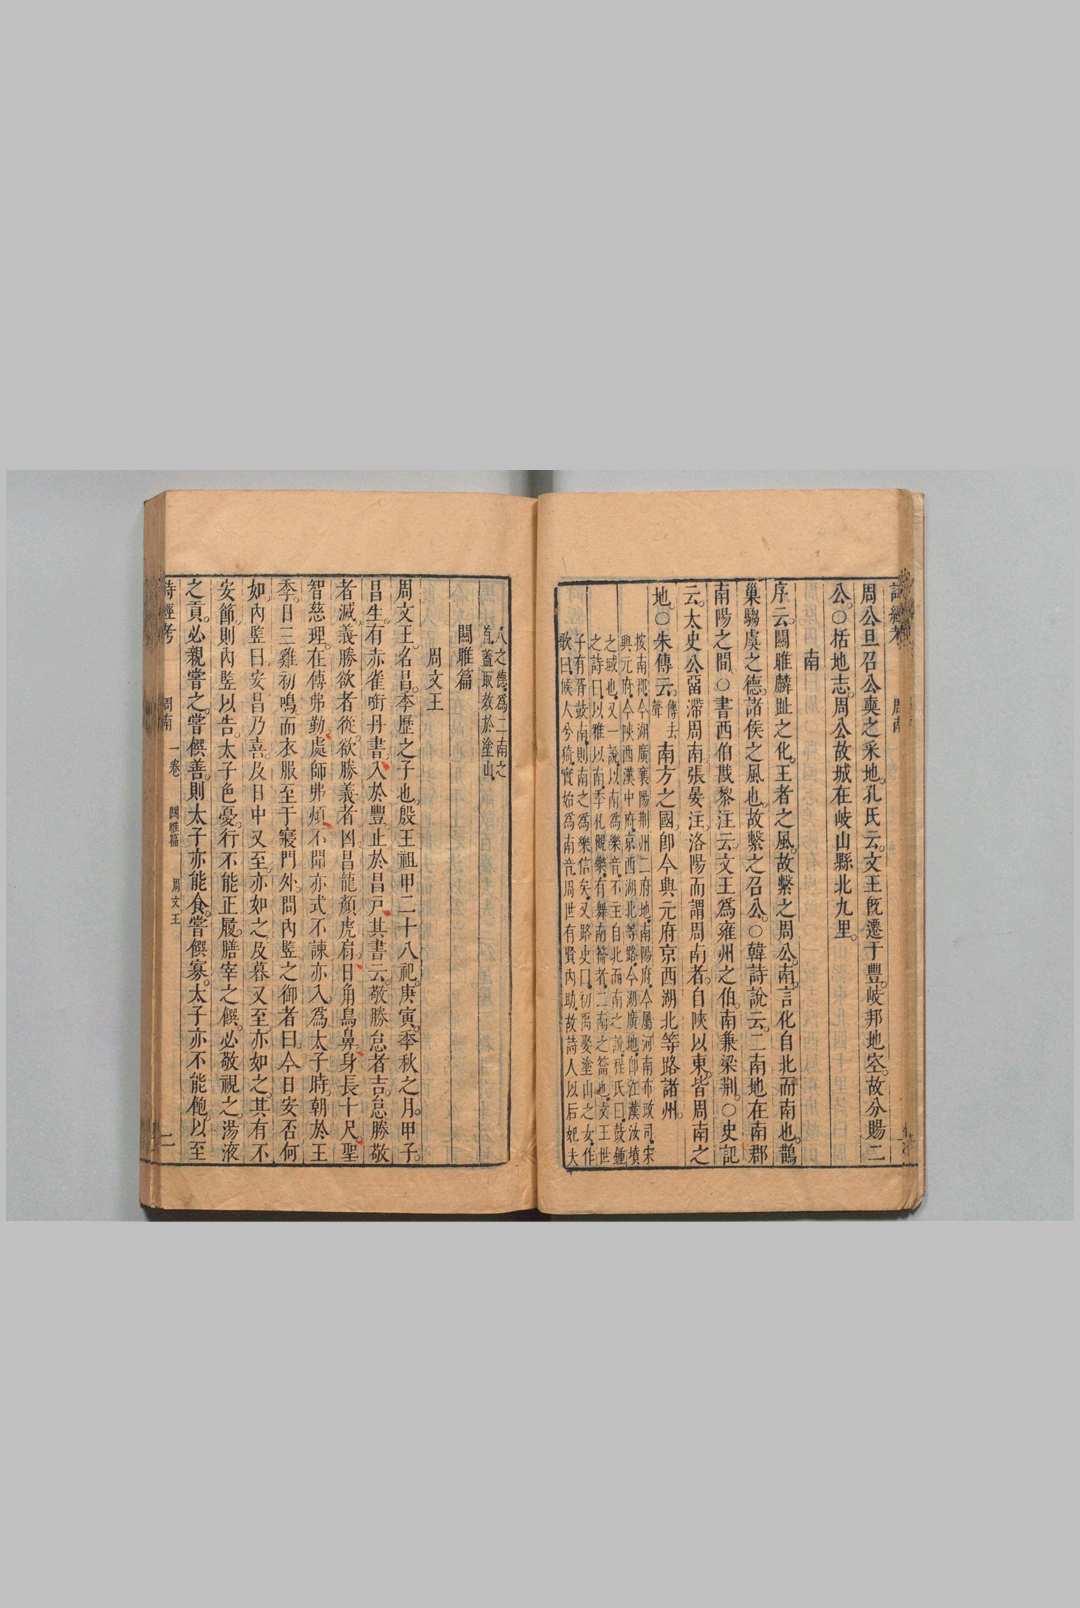 周公旦召公奭之采地。孔氏云。文王旣遷于豐。岐邦地空。故分賜二
公。○括地志。周公故城在岐山縣北九里。
南
序云。關雎麟趾之化。王者之風。故繫之周公。南。言化自北而南也。鵲
巢騶虞之德。諸侯之風也。故繫之召公。○韓詩說云。二南地在南郡
南陽之間。○書西伯戡黎注云。文王爲雍州之伯。南兼梁荆。○史記
云。太史公留滯周南。張晏注。洛陽而謂周南者。自陝以東。皆周南之
地。○朱傳云。傳去聲南方之國。卽今興元府京西湖北等路諸州。
按南郡。今湖廣襄陽荆州二府地。南陽府。今屬河南布政司。宋
興元府。今陝西漢中府。京西湖北等路。今湖廣地。卽江漢汝墳
之域也。又一說。以南爲樂音。不主自北而南之說。程氏曰。鼓鍾
之詩曰。以雅以南。季札觀樂。有舞南籥者。二南之籥也。文王世
子有胥鼓南。則南之爲樂信矣。又路史曰。初禹娶塗山之女。作
歌曰候人兮猗。實始爲南音。周世有賢內助。故詩人以后妃夫
人之德。爲二南之
首。蓋取效於塗山。
關雎篇
周文王
周文王。名昌。季歷之子也。殷王祖甲二十八祀。庚寅。季秋之月。甲子。
昌生。有赤雀銜丹書。入於豐。止於昌戸。其書云。敬勝怠者吉。怠勝敬
者滅。義勝欲者從。欲勝義者凶。昌龍顏虎肩。日角鳥鼻。身長十尺。聖
智慈理。在傅弗勤。處師弗煩。不聞亦式。不諫亦入。爲太子時。朝於王
季。日三。雞初鳴而衣服。至于寢門外。問內豎之御者曰。今日安否何
如。內豎曰安。昌乃喜。及日中又至。亦如之。及暮又至。亦如之。其有不
安節。則內豎以告。太子色憂。行不能正履。膳宰之饌。必敬視之。湯液
之貢。必親嘗之。嘗饌善。則太子亦能食。嘗饌寡。太子亦不能飽。以至
詩經考 周南 一卷 關雎篇 周文王 二